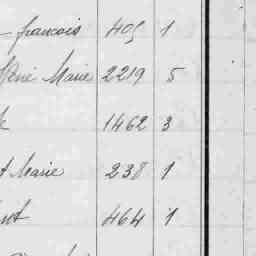 francois 405 1
René Marie 2219 5
1462 3
Marie 238 1
464 1